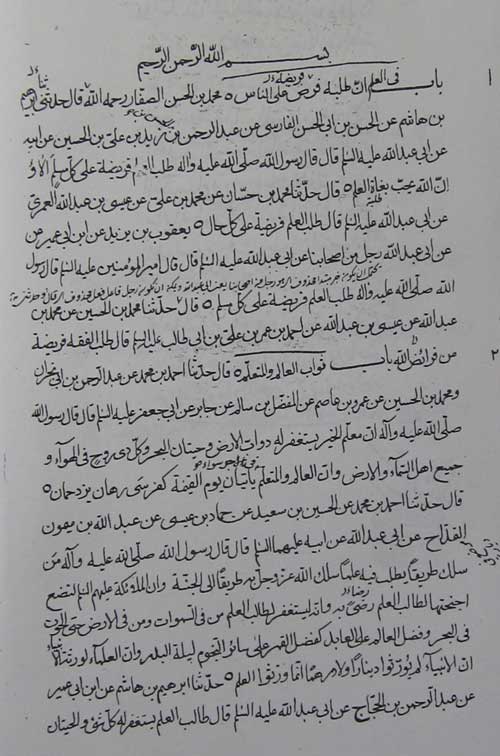 بسم الله الرحمن الرحيم
باب في العلم ان طلبه فرض على الناس محمد بن الحسن الصفار رحمه الله قال حدثني ابراهيم
بن هاشم عن الحسن بن ابي الحسن الفارسي عن عبد الرحمن بن زيد بن علي بن الحسين عن ابيه
عن ابي عبد الله عليه السلم قال قال رسول الله صلى الله عليه واله طلب العلم فريضة على كل مسلم الا و
ان الله يحب بغاة العلم قال حدثنا محمد بن حسان عن محمد بن علي عن عيسى بن عبد الله العمري
عن ابي عبد الله عليه السلم قال طلب العلم فريضة على كل حال يعقوب بن يزيد عن ابن ابي عمير عن
عن ابي عبد الله رجل من اصحابنا عن ابي عبد الله عليه السلم قال قال امير المؤمنين عليه السلم قال رسول
الله صلى الله عليه واله طلب العلم فريضة على كل مسلم قال حدثنا محمد بن الحسين عن محمد بن
عبد الله عن عيسى بن عبد الله عن احمد بن عمر بن علي بن ابي طالب عليه السلم قال طلب الفقه فريضة
من فرائض الله باب ثواب العالم والمتعلم قال حدثنا احمد بن محمد عن عبد الرحمن بن ابي نجران
ومحمد بن الحسين عن عمرو بن عاصم عن المفضل بن سالم عن جابر عن ابي جعفر عليه السلم قال قال رسول الله
صلى الله عليه واله ان معلم الخير يستغفر له دواب الارض وحيتان البحر وكل ذي روح في الهواء و
جميع اهل السماء والارض وان العالم والمتعلم يأتيان يوم القيمة كفرسي رهان يزدحمان
قال حدثنا احمد بن محمد عن الحسين بن سعيد عن حماد بن عيسى عن عبد الله بن ميمون
القداح عن ابي عبد الله عن ابيه عليهما السلم قال قال رسول الله صلى الله عليه واله من
سلك طريقا يطلب فيه علما سلك الله عز وجل به طريقا الى الجنة وان الملائكة عليهم السلم لتضع
اجنحتها لطالب العلم رضى به وانه ليستغفر لطالب العلم من في السموات ومن في الارض حتى الحوت
في البحر وفضل العالم على العابد كفضل القمر على سائر النجوم ليلة البدر وان العلماء لورثة الانبياء
ان الانبياء لم يورثوا دينارا ولا درهما انما ورثوا العلم حدثنا ابرهيم بن هاشم عن ابن ابي عمير
عن عبد الرحمن بن الحجاج عن ابي عبد الله عليه السلم قال طالب العلم يستغفر له كل شئ والحيتان